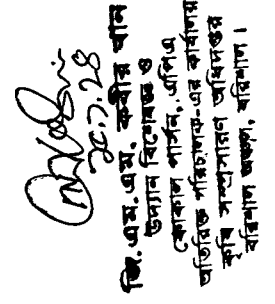 ২৫.১.২৪
জি. এম. এম. কবীর খান
উদ্যান বিশেষজ্ঞ ও
ফোকাল পার্সন, এপিএ
অতিরিক্ত পরিচালক-এর কার্যালয়
কৃষি সম্প্রসারণ অধিদপ্তর
বরিশাল অঞ্চল, বরিশাল।